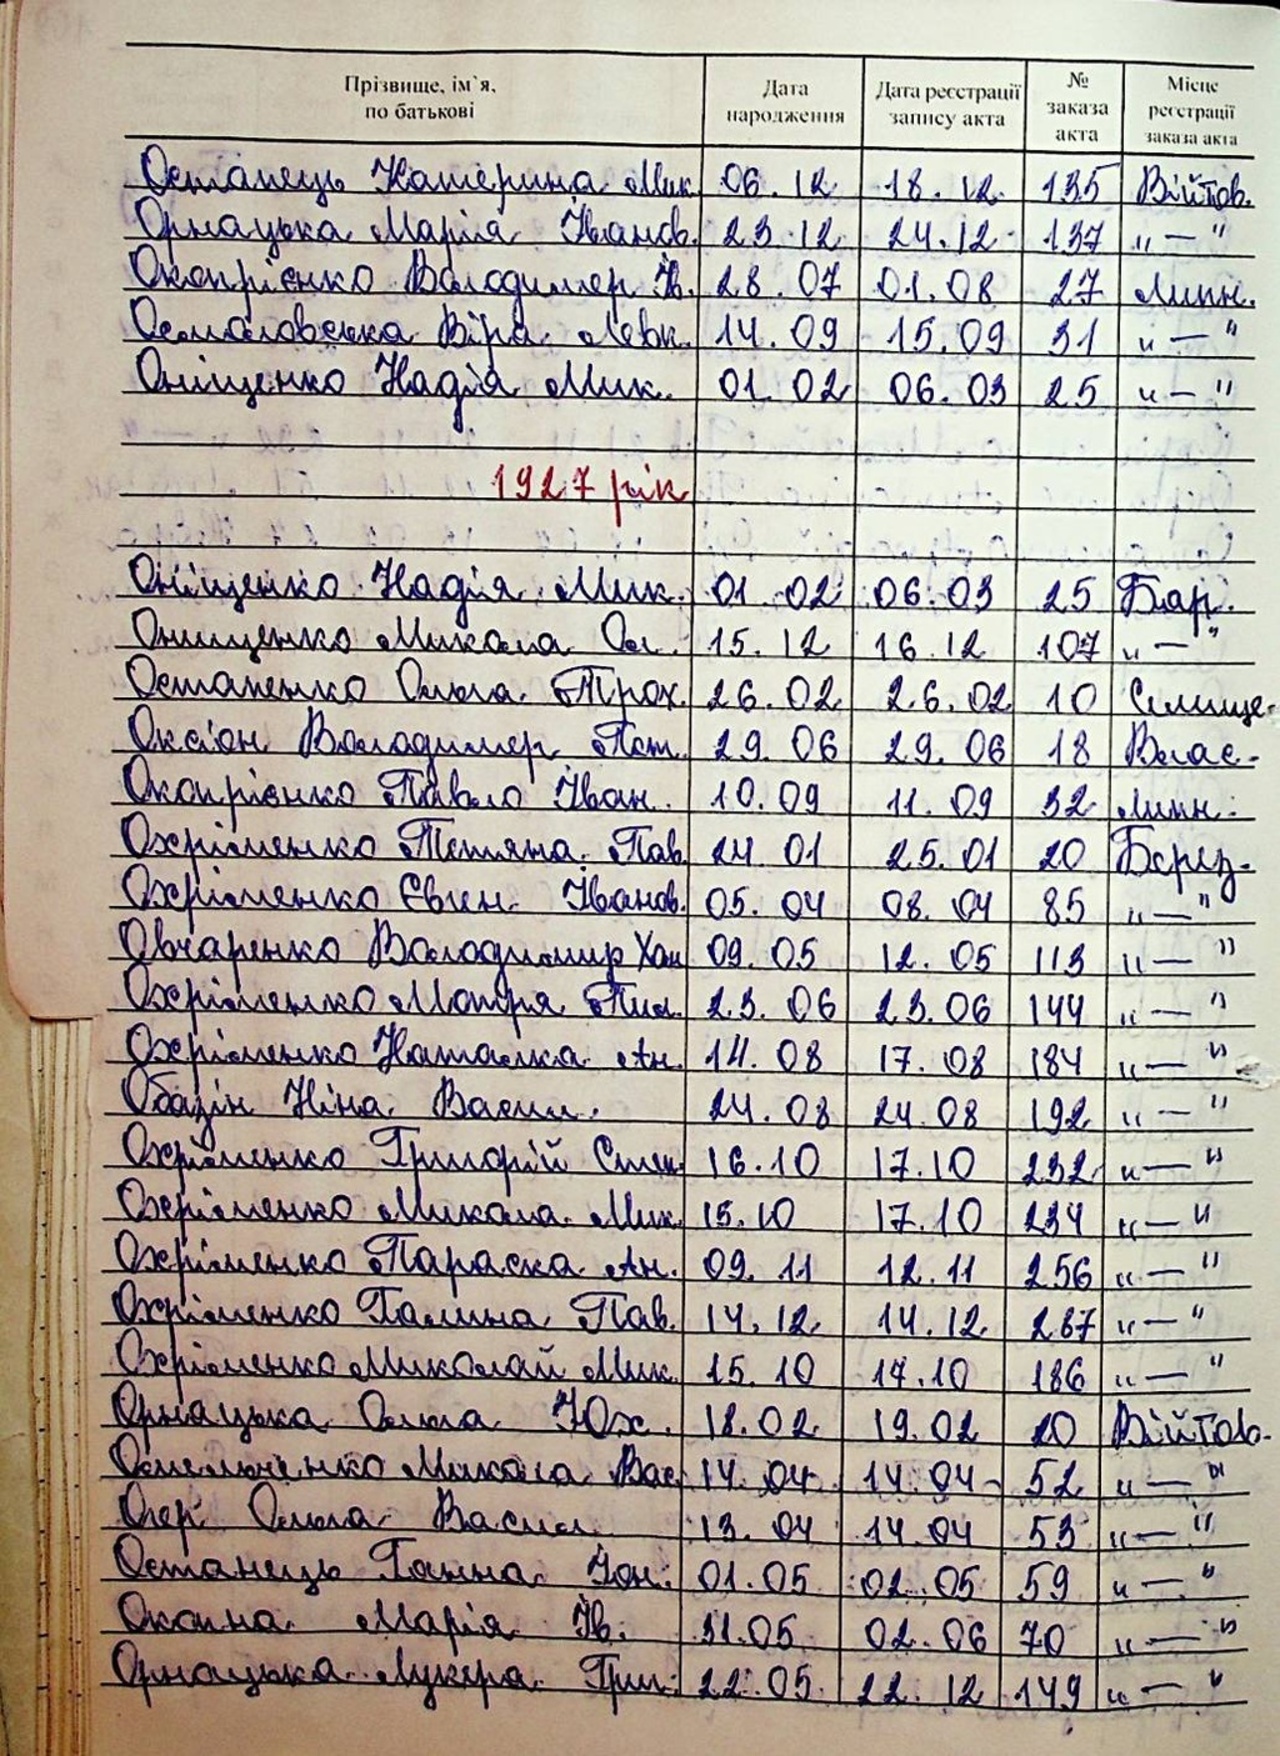 Прізвище, ім`я, по батькові | Дата народження | Дата реєстрації запису акта | № заказа акта | Місце реєстрації заказа акта
Остапець Катерина Мик. 06.12 18.12. 135 Війтов.
Орнацька Марія Іванов. 23.12 24.12 137 „ — "
Окопрієнко Володимер Ів. 28.07 01.08 27 Липн.
Осмоловська Віра Левк. 14.09 15.09 31 „ — "
Оніщенко Надія Мик. 01.02 06.03 25 „ — "
1927 рік
Оніщенко Надія Мик. 01.02 06.03 25 Бар.
Онищенко Микола Ол. 15.12 16.12 107 „ — "
Остапенко Ольга Трох. 26.02 26.02 10 Селище.
Оксіон Володимер Пет. 29.06 29.06 18 Влас.
Окопрієнко Павло Іван. 10.09 11.09 32 Липн.
Охріменко Тетяна Пав. 24.01 25.01 20 Берез.
Охріменко Євген Іванов. 05.04 08.04 85 „ — "
Овчаренко Володимир Хом 09.05 12.05 113 „ — "
Охріменко Мотря Пил. 23.06 23.06 144 „ — "
Охріменко Наталка Ан. 14.08 17.08 184 „ — "
Обазін Ніна Васил. 24.08 24.08 192 „ — "
Охріменко Григорій Степ 16.10 17.10 232 „ — "
Охріменко Микола Мик. 15.10 17.10 234 „ — "
Охріменко Параска Ан. 09.11 12.11 256 „ — "
Охріменко Галина Пав. 14.12. 14.12. 287 „ — "
Охріменко Миколай Мик. 15.10 17.10 186 „ — "
Орнацька Ольга Юх. 18.02. 19.02 20 Війтов.
Омельченко Микола Вас. 14.04 14.04 52 „ — "
Ольга Васил 13.04 14.04 53 „ — "
Остапець Ганна Іон. 01.05 02.05 59 „ — "
Марія Ів. 31.05 02.06 70 „ — "
Орнацька Лукера Гри. 22.05. 22.12 149 „ — "